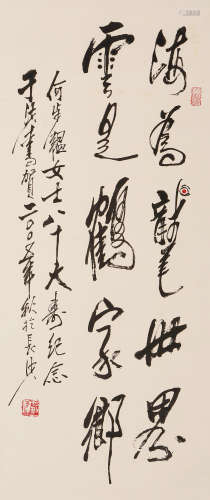 海为龙世界
云是鹤家乡
何步韫女士八十大寿纪念
于洪业书贺二〇〇五年秋于长沙